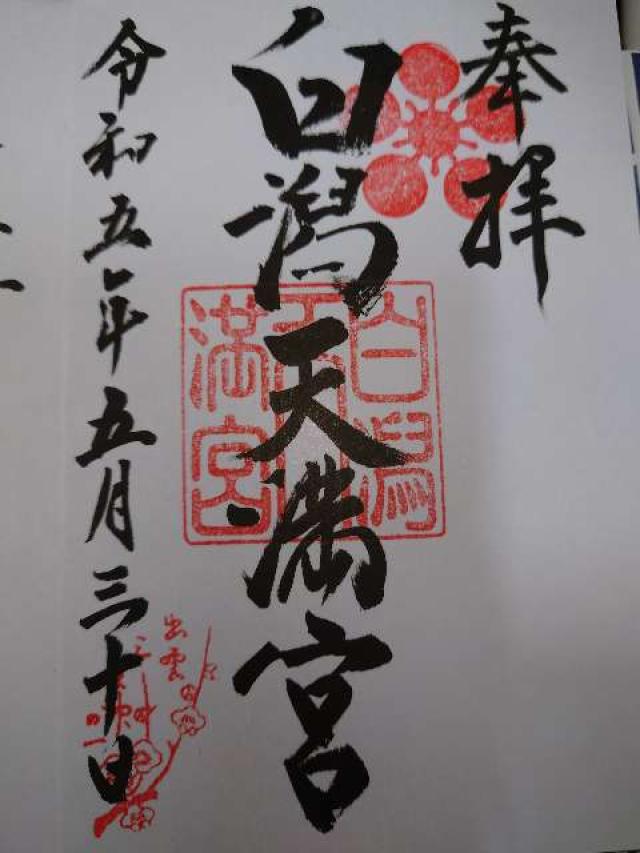 奉拝
白潟天満宮
令和五年五月三十日
白潟
天
満宮
出雲の